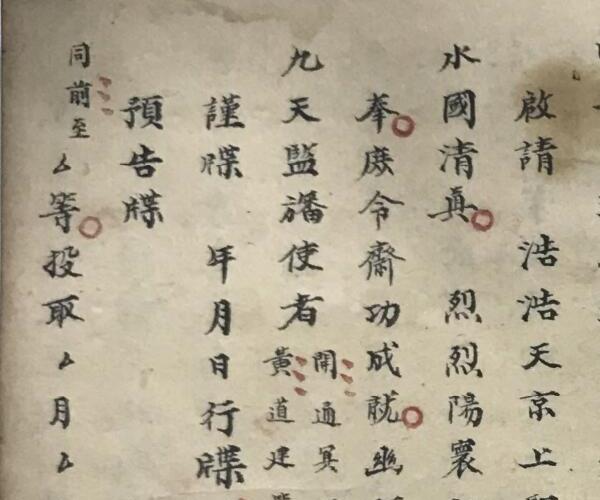 啟請 浩浩天京上
水國清真 烈烈陽寰
奉 庶令齋功成就 幽
九天監旛使者 開通冥
黃道建
謹牒 年月日行牒
預告牒
同前至厶等投取厶月厶